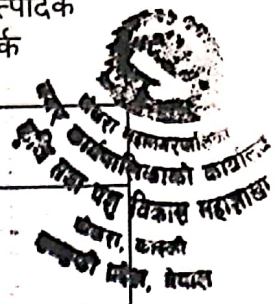 त्पादक
र्क
पोखरा महानगरपालिका
नगर कार्यपालिकाको कार्यालय
कृषि तथा पशु विकास महाशाखा
पोखरा, कास्की
गण्डकी प्रदेश, नेपाल